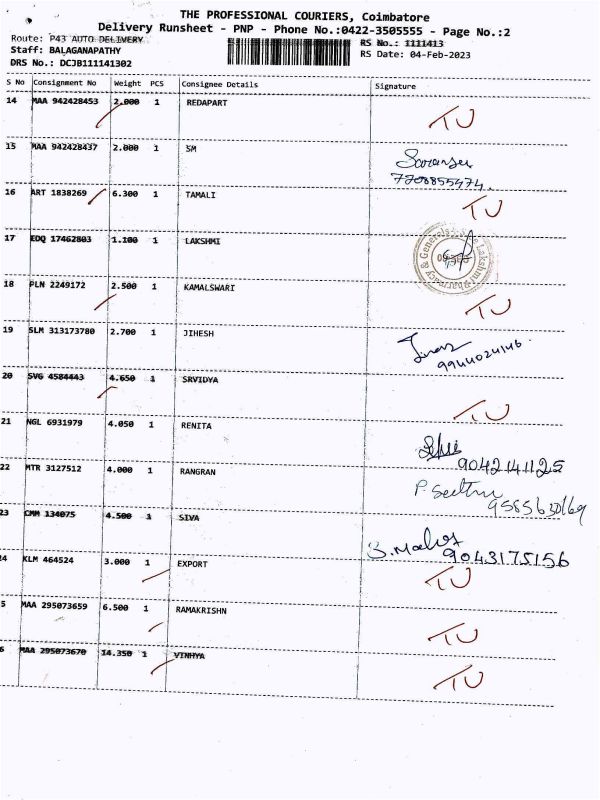 THE PROFESSIONAL COURIERS, Coimbatore
Delivery Runsheet - PNP - Phone No.:0422-3505555 - Page No.:2
Route: P43 AUTO DELIVERY
Staff: BALAGANAPATHY
DRS No.: DCJB111141302
RS No.: 1111413
RS Date: 04-Feb-2023
S No Consignment No Weight PCS Consignee Details Signature
14 MAA 942428453 2.000 1 REDAPART TU
15 MAA 942428437 2.000 1 SM
7708855474.
16 ART 1838269 6.300 1 TAMALI TU
17 EDQ 17462803 1.100 1 LAKSHMI
18 PLN 2249172 2.500 1 KAMALSWARI TU
19 SLM 313173780 2.700 1 JIHESH
9944024146.
20 SVG 4584443 4.650 1 SRVIDYA TU
21 NGL 6931979 4.050 1 RENITA
9042141125
22 MTR 3127512 4.000 1 RANGRAN
23 CMM 134075 4.500 1 SIVA
9043175156
24 KLM 464524 3.000 1 EXPORT TU
5 MAA 295073659 6.500 1 RAMAKRISHN TU
6 MAA 295073670 14.350 1 VINHYA TU